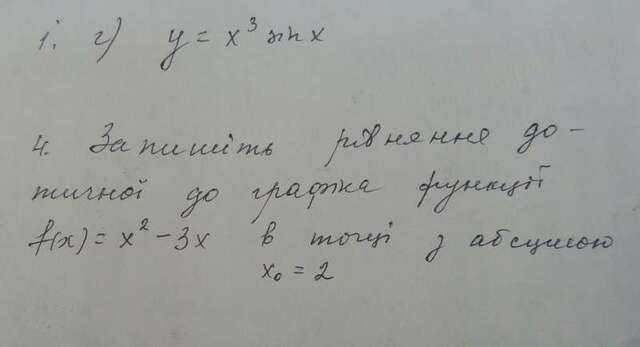 1. г) y = x³ sin x
4. Запишіть рівняння до-
тичної до графіка функції
f(x) = x² - 3x в точці з абсцисою
x₀ = 2